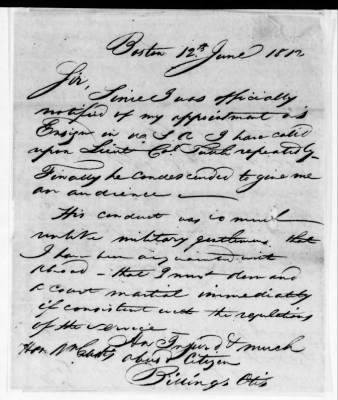 Boston 12th June 1812
Sir,
Since I was officially
notified of my appointment as
Ensign in U.S. A I have called
upon Lieut Col. repeatedly
Finally he condescended to give me
an audience —
His conduct was so much
unlike military gentlemen that
I have been acquainted with
abroad — that I must demand
a court martial immediately
if consistent with the regulations
of the service
An Injurd & much
Hon. Wm Eustis abusd Citizen
Billings Otis